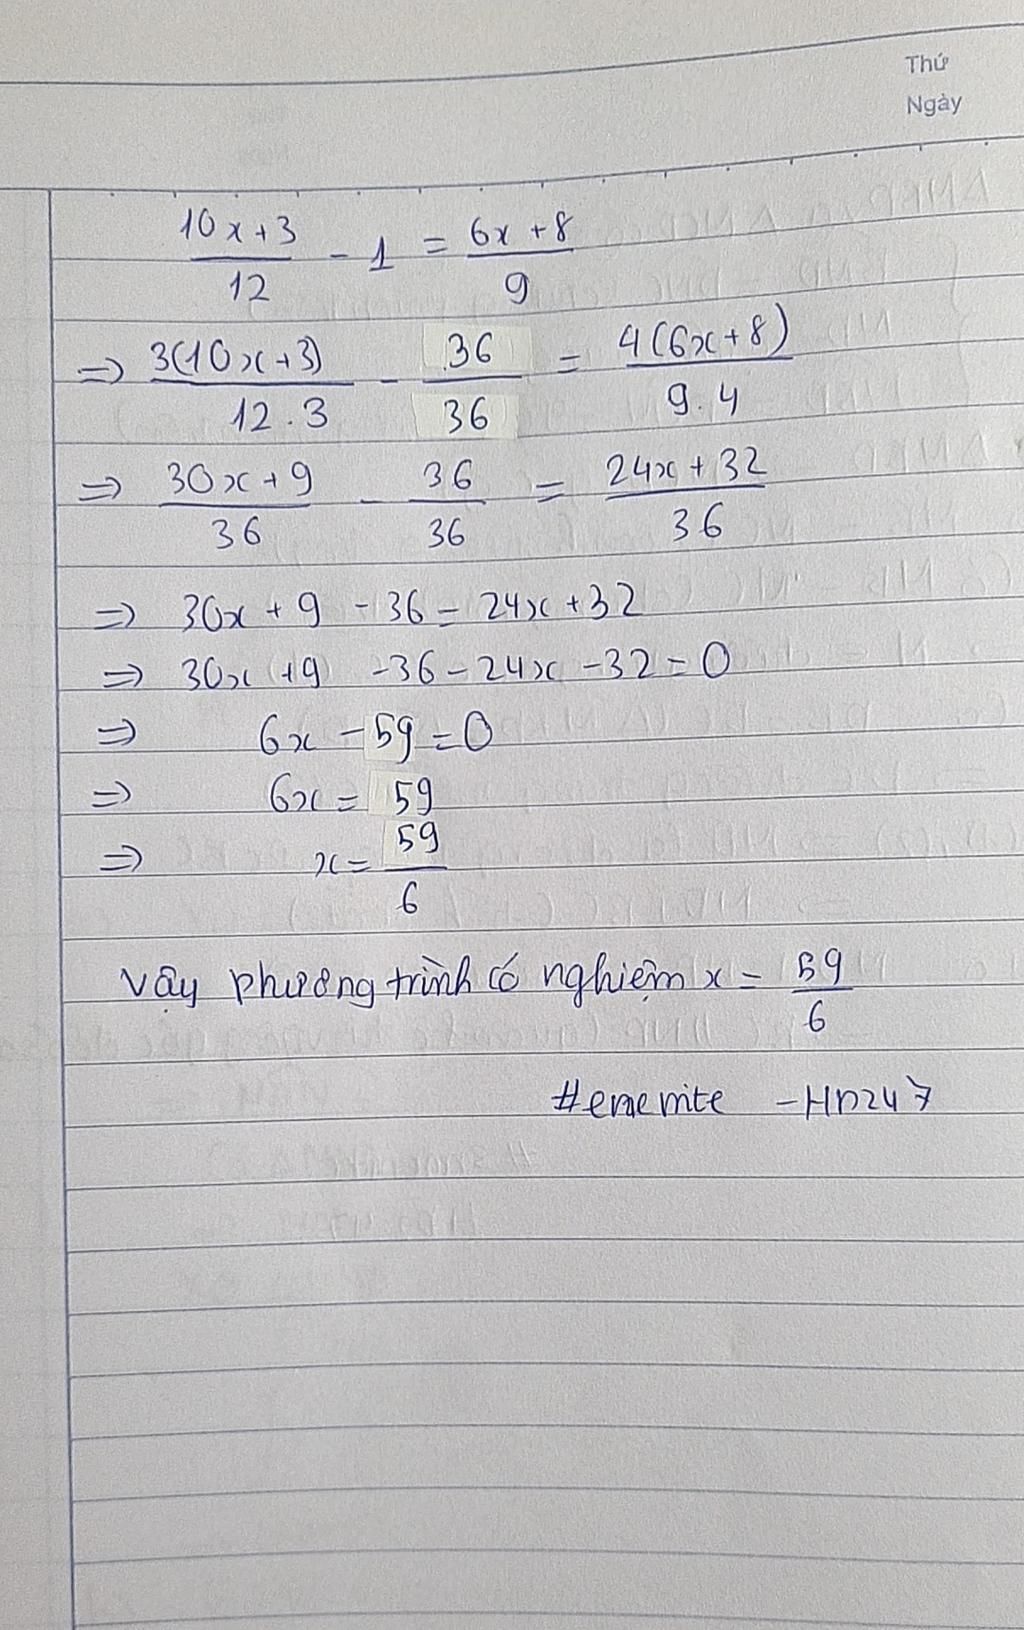 Thứ
Ngày
(10x+3)/12 - 1 = (6x+8)/9
=> 3(10x+3)/(12.3) - 36/36 = 4(6x+8)/(9.4)
=> (30x+9)/36 - 36/36 = (24x+32)/36
=> 30x+9 -36 = 24x+32
=> 30x +9 -36-24x -32=0
=> 6x -59=0
=> 6x = 59
=> x = 59/6
Vậy phương trình có nghiệm x = 59/6